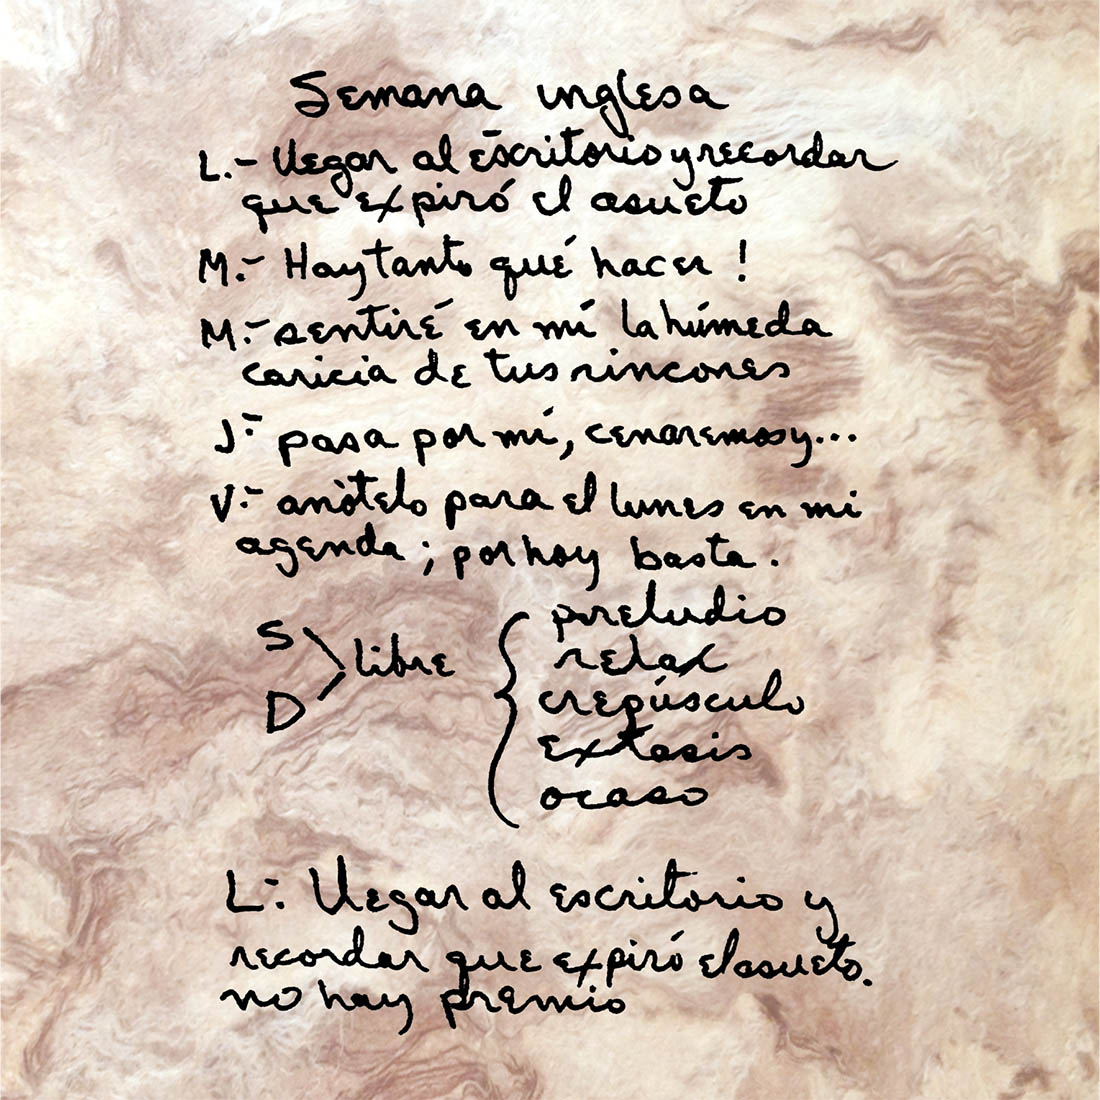 Semana inglesa
L.- Llegar al escritorio y recordar
que expiró el asueto
M.- Hay tanto qué hacer!
M.- sentiré en mí la húmeda
caricia de tus rincones
J.- pasa por mí, cenaremos y...
V.- anótelo para el lunes en mi
agenda; por hoy basta.
S
D
libre
preludio
relax
crepúsculo
extasis
ocaso
L.- Llegar al escritorio y
recordar que expiró el asueto.
no hay premio